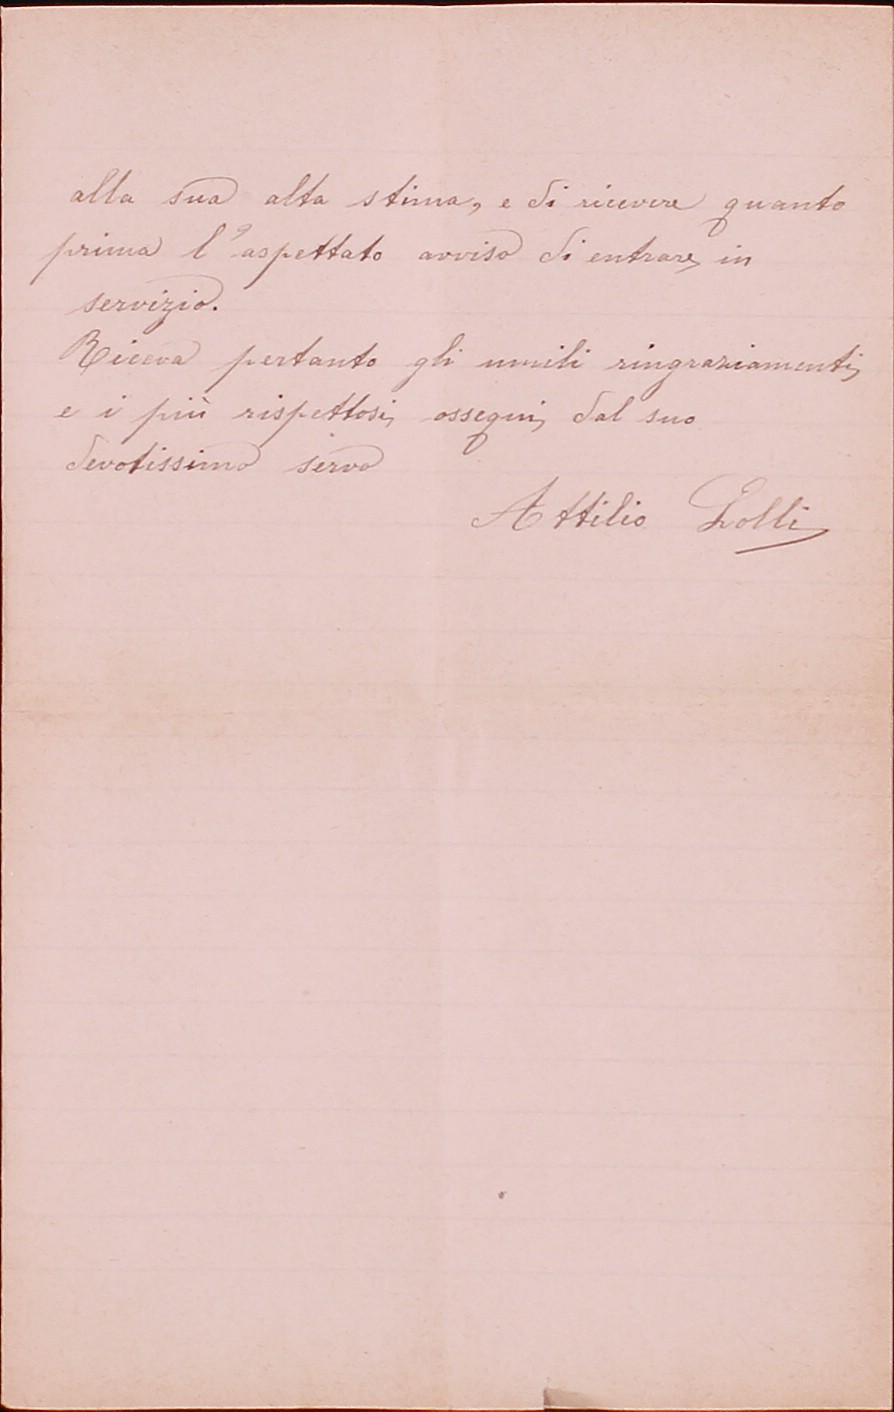 alla sua alta stima, e di ricevere quanto
prima l'aspettato avviso di entrare in
servizio.
Riceva pertanto gli umili ringraziamenti
e i più rispettosi ossequi dal suo
devotissimo servo
Attilio Lolli